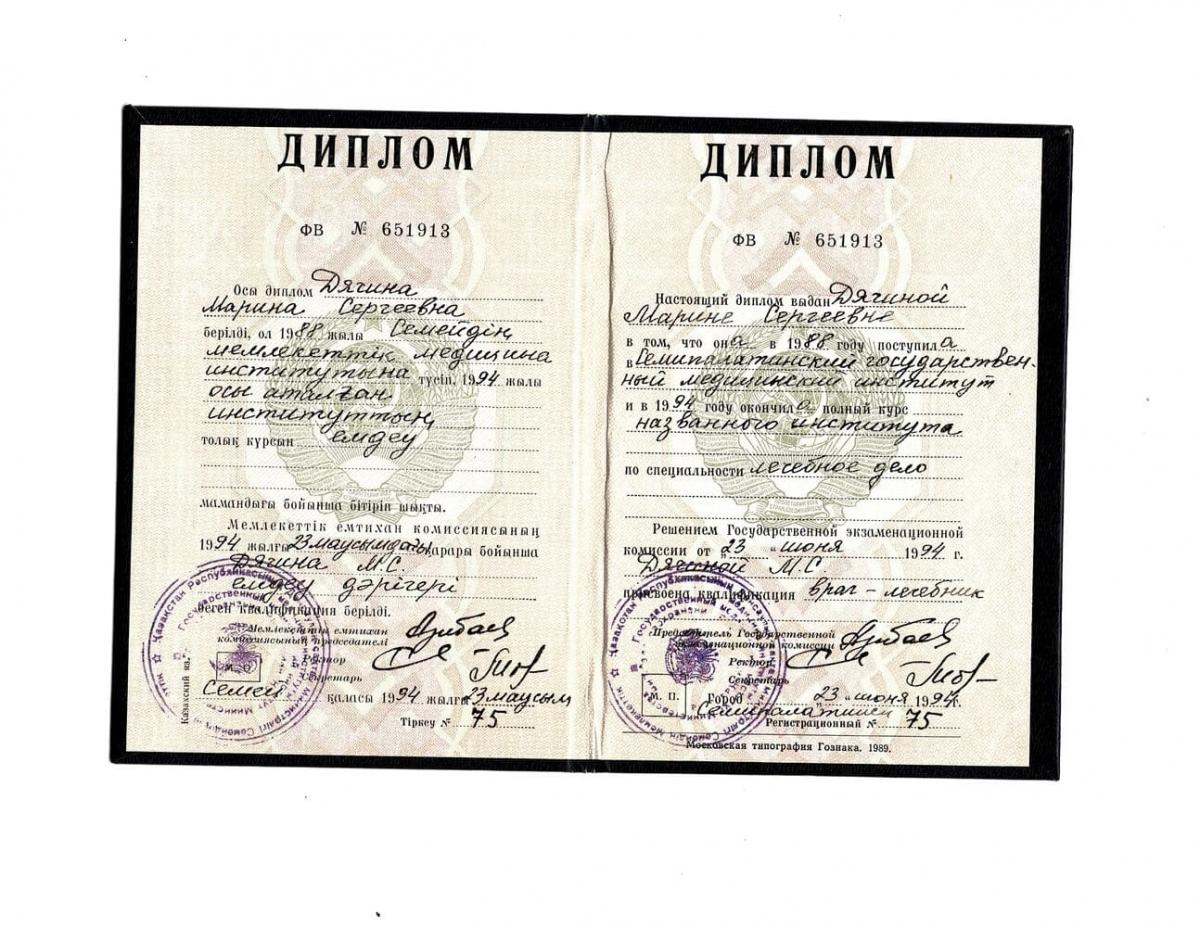 ДИПЛОМ
ФВ № 651913
Осы диплом Дягина
Марина Сергеевна
берілді, ол 1988 жылы Семейдің
мемлекеттік медицина
институтына түсіп, 1994 жылы
осы аталған
институттың
толық курсын емдеу
мамандығы бойынша бітіріп шықты.
Мемлекеттік емтихан комиссиясының
1994 жылғы 23 маусымдағы қарары бойынша
Дягина М.С.
емдеу дәрігері
деген квалификация берілді.
Мемлекеттік емтихан
комиссиясының председателі
Ректор
Секретарь
М О
Семей қаласы 1994 жылғы 23 маусым
Тіркеу № 75
Казахский яз.
ДИПЛОМ
ФВ № 651913
Настоящий диплом выдан Дягиной
Марине Сергеевне
в том, что она в 1988 году поступила
в Семипалатинский государствен-
ный медицинский институт
и в 1994 году окончила полный курс
названного института
по специальности лечебное дело
Решением Государственной экзаменационной
комиссии от "23" июня 1994 г.
Дягиной М.С.
присвоена квалификация врач-лечебник
Председатель Государственной
экзаменационной комиссии
Ректор
Секретарь
М. П. Город "23" июня 1994г.
Семипалатинск
Регистрационный № 75
Московская типография Гознака. 1989.